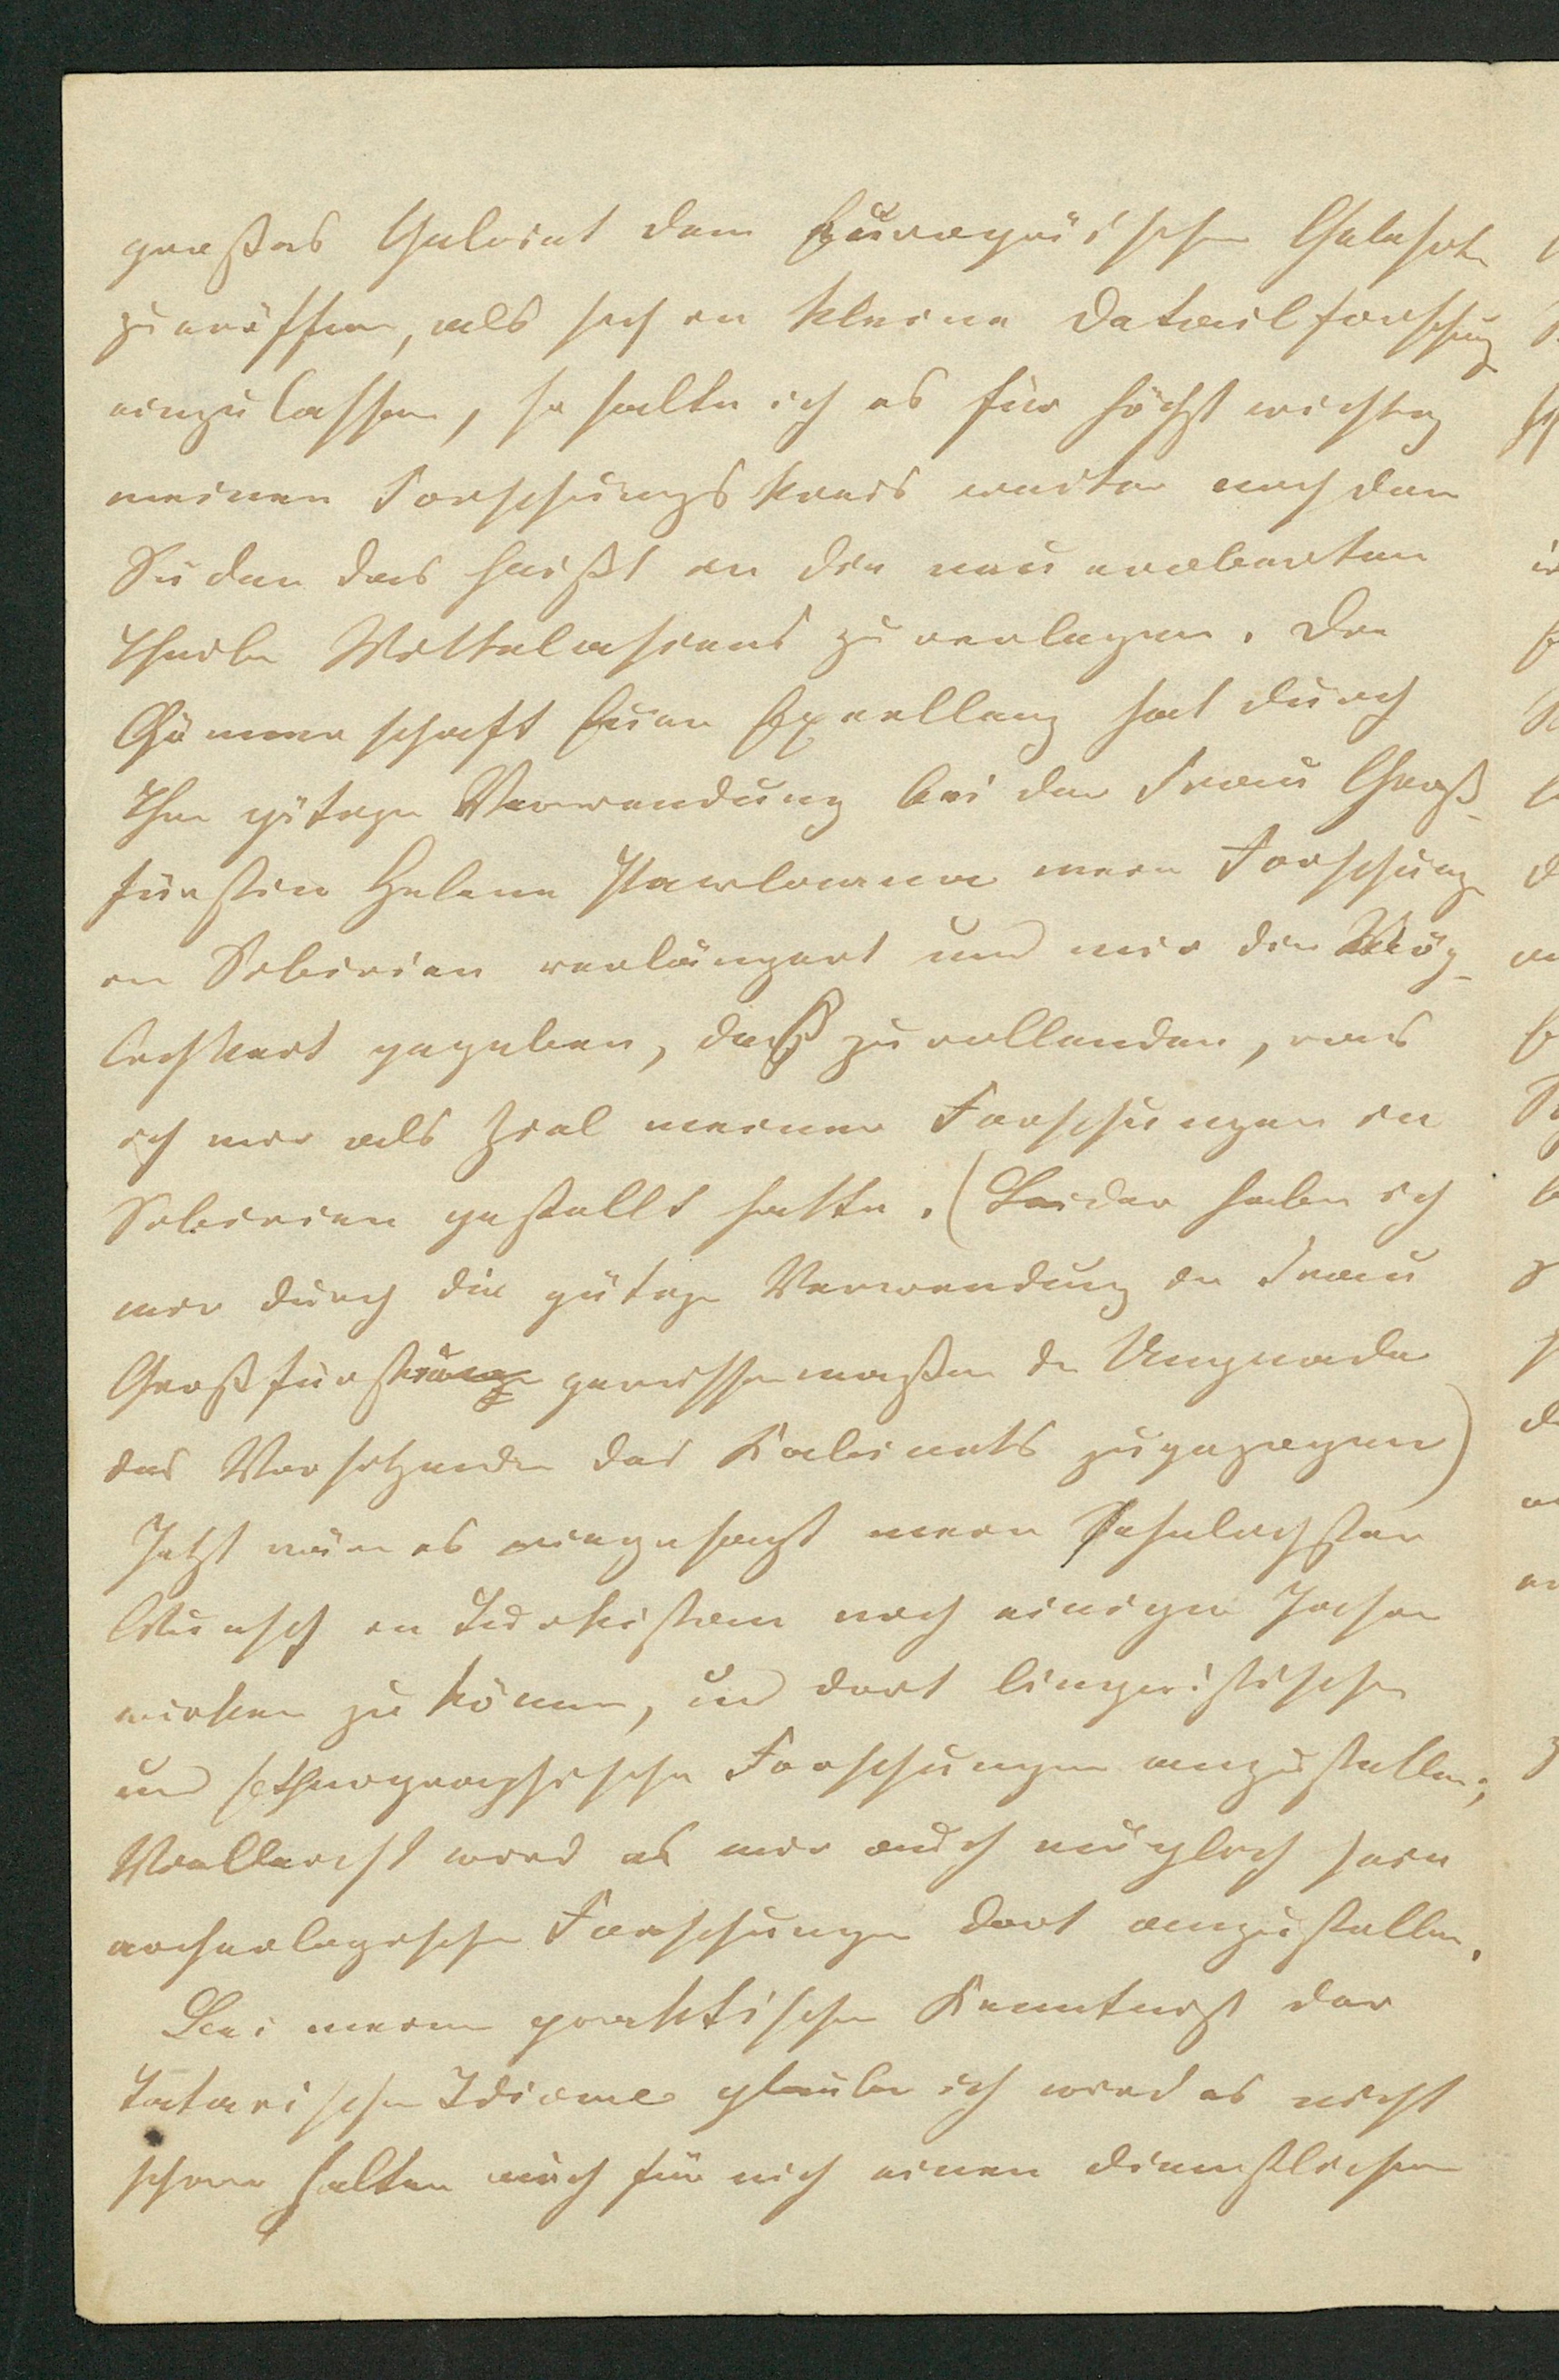 großes Gebiet dem Europäischen Gelehrten
zu eröffnen, als sich in kleine Detailforschung
einzulassen, so halte ich es für höchst wichtig
meinen Forschungskreis weiter nach dem
Süden das heißt in die neu eroberten
Theile Mittelasiens zu verlegen. Die
Gönnerschaft Eurer Excellenz hat durch
Ihre gütige Verwendung bei der Frau Groß-
fürstin Helene Pawlowna mein Forschung
in Sibirien verlängert und mir die Mög-
lichkeit gegeben, daß zu vollenden, was
ich mir als Ziel meiner Forschungen in
Sibirien gestellt hatte. (Leider habe ich
mir durch die gütige Verwendung der Frau
Großfürstin gewissermaßen die Ungnade
des Vorsitzenden des Kabinets zugezogen)
Jetzt wäre es mein sehnlichster
Wunsch in Turkistan noch einige Jahre
wirken zu können, und dort linguistische
und ethnographische Forschungen anzustellen;
Vielleicht wird es mir auch möglich sein
archeologische Forschungen dort anzustellen.
Bei meiner praktischen Kenntniß der
Tatarischen Idiome glaube ich wird es nicht
schwer halten auch für mich einen dienstlichen